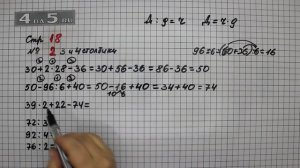 4АЛЛ5.RU
Стр 18
№ 2 3 и 4 столбики
Д : д = ч Д = ч · д
96:6=(60+36):6=16
30+2·28-36=30+56-36=86-36=50
50-96:6+40=50-16+40=34+40=74
39·2+22-74=
72:3
92:4=
76:2=